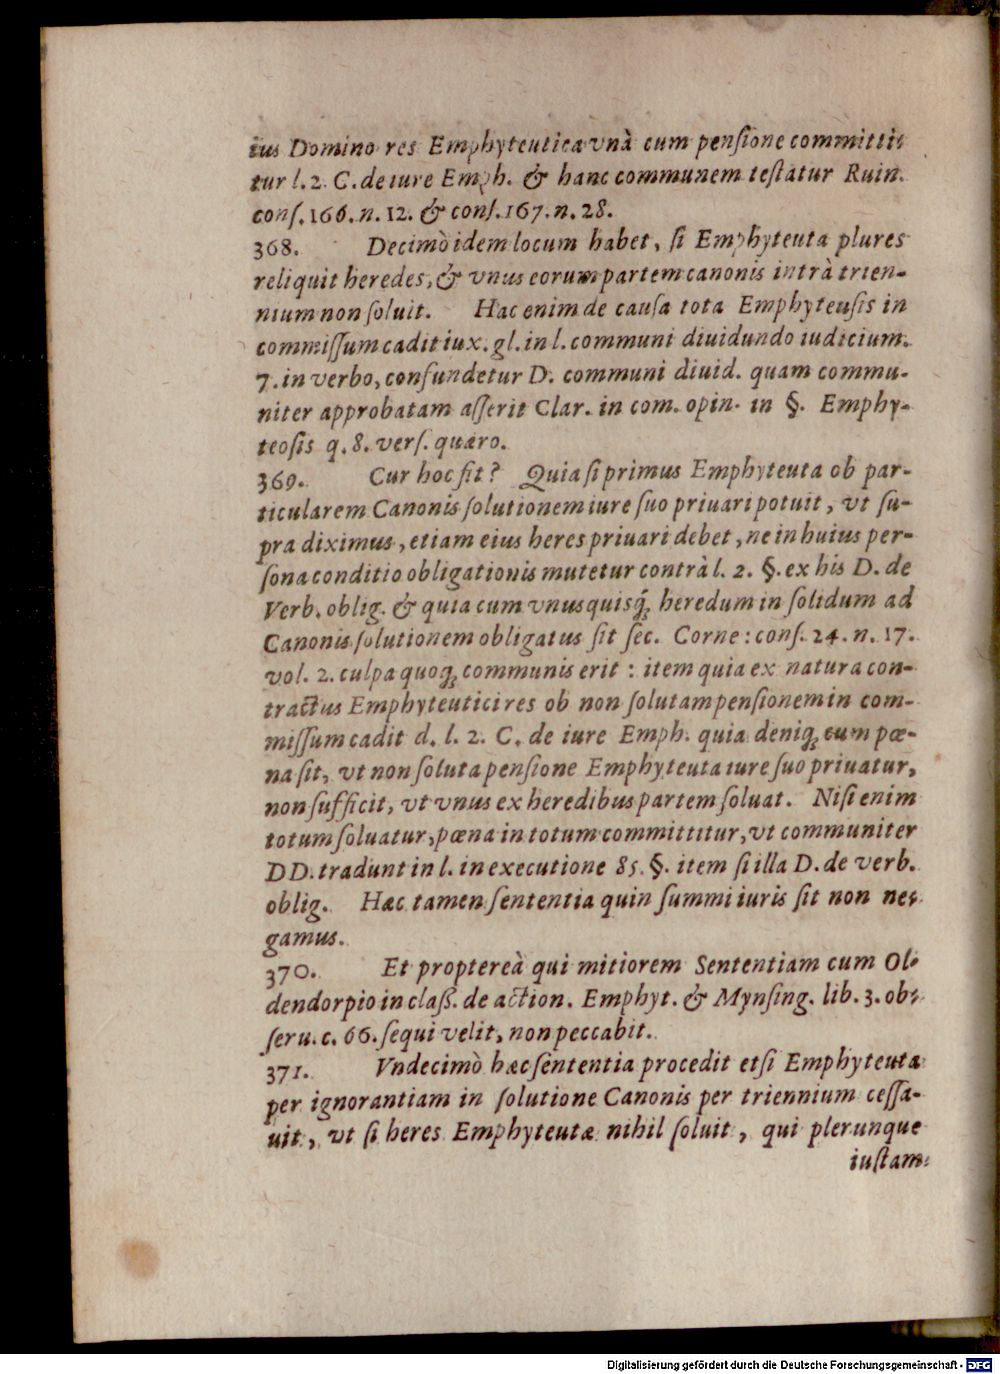 ius Domino res Emphyteutica vnà cum penſione committi-
tur l. 2. C. de iure Emph. & hanc communem teſtatur Ruin.
conſ. 166. n. 12. & conſ. 167. n. 28.
368. Decimò idem locum habet, ſi Emphyteuta plures
reliquit heredes, & vnus eorum partem canonis intrà trien-
nium non ſoluit. Hac enim de cauſa tota Emphyteuſis in
commiſſum cadit iux. gl. in l. communi diuidundo iudicium.
7. in verbo, confundetur D. communi diuid. quam commu-
niter approbatam aſſerit Clar. in com. opin. in §. Emphy-
teoſis q. 8. verſ. quæro.
369. Cur hoc fit? Quia ſi primus Emphyteuta ob par-
ticularem Canonis ſolutionem iure ſuo priuari potuit, vt ſu-
pra diximus, etiam eius heres priuari debet, ne in huius per-
ſona conditio obligationis mutetur contrà l. 2. §. ex his D. de
Verb. oblig. & quia cum vnusquisq́; heredum in ſolidum ad
Canonis ſolutionem obligatus ſit ſec. Corne: conſ. 24. n. 17.
vol. 2. culpa quoq; communis erit: item quia ex natura con-
tractus Emphyteutici res ob non ſolutam penſionem in com-
miſſum cadit d. l. 2. C. de iure Emph. quia deniq; cum pœ-
na ſit, vt non ſoluta penſione Emphyteuta iure ſuo priuatur,
non ſufficit, vt vnus ex heredibus partem ſoluat. Niſi enim
totum ſoluatur, pœna in totum committitur, vt communiter
DD. tradunt in l. in executione 85. §. item ſi illa D. de verb.
oblig. Hæc tamen ſententia quin ſummi iuris ſit non ne-
gamus.
370. Et proptereà qui mitiorem Sententiam cum Ol-
dendorpio in claſſ. de action. Emphyt. & Mynſing. lib. 3. ob-
ſeru. c. 66. ſequi velit, non peccabit.
371. Vndecimò hæc ſententia procedit etſi Emphyteuta
per ignorantiam in ſolutione Canonis per triennium ceſſa-
uit, vt ſi heres Emphyteutæ nihil ſoluit, qui plerunque
iuſtam
Digitalisierung gefördert durch die Deutsche Forschungsgemeinschaft - DFG